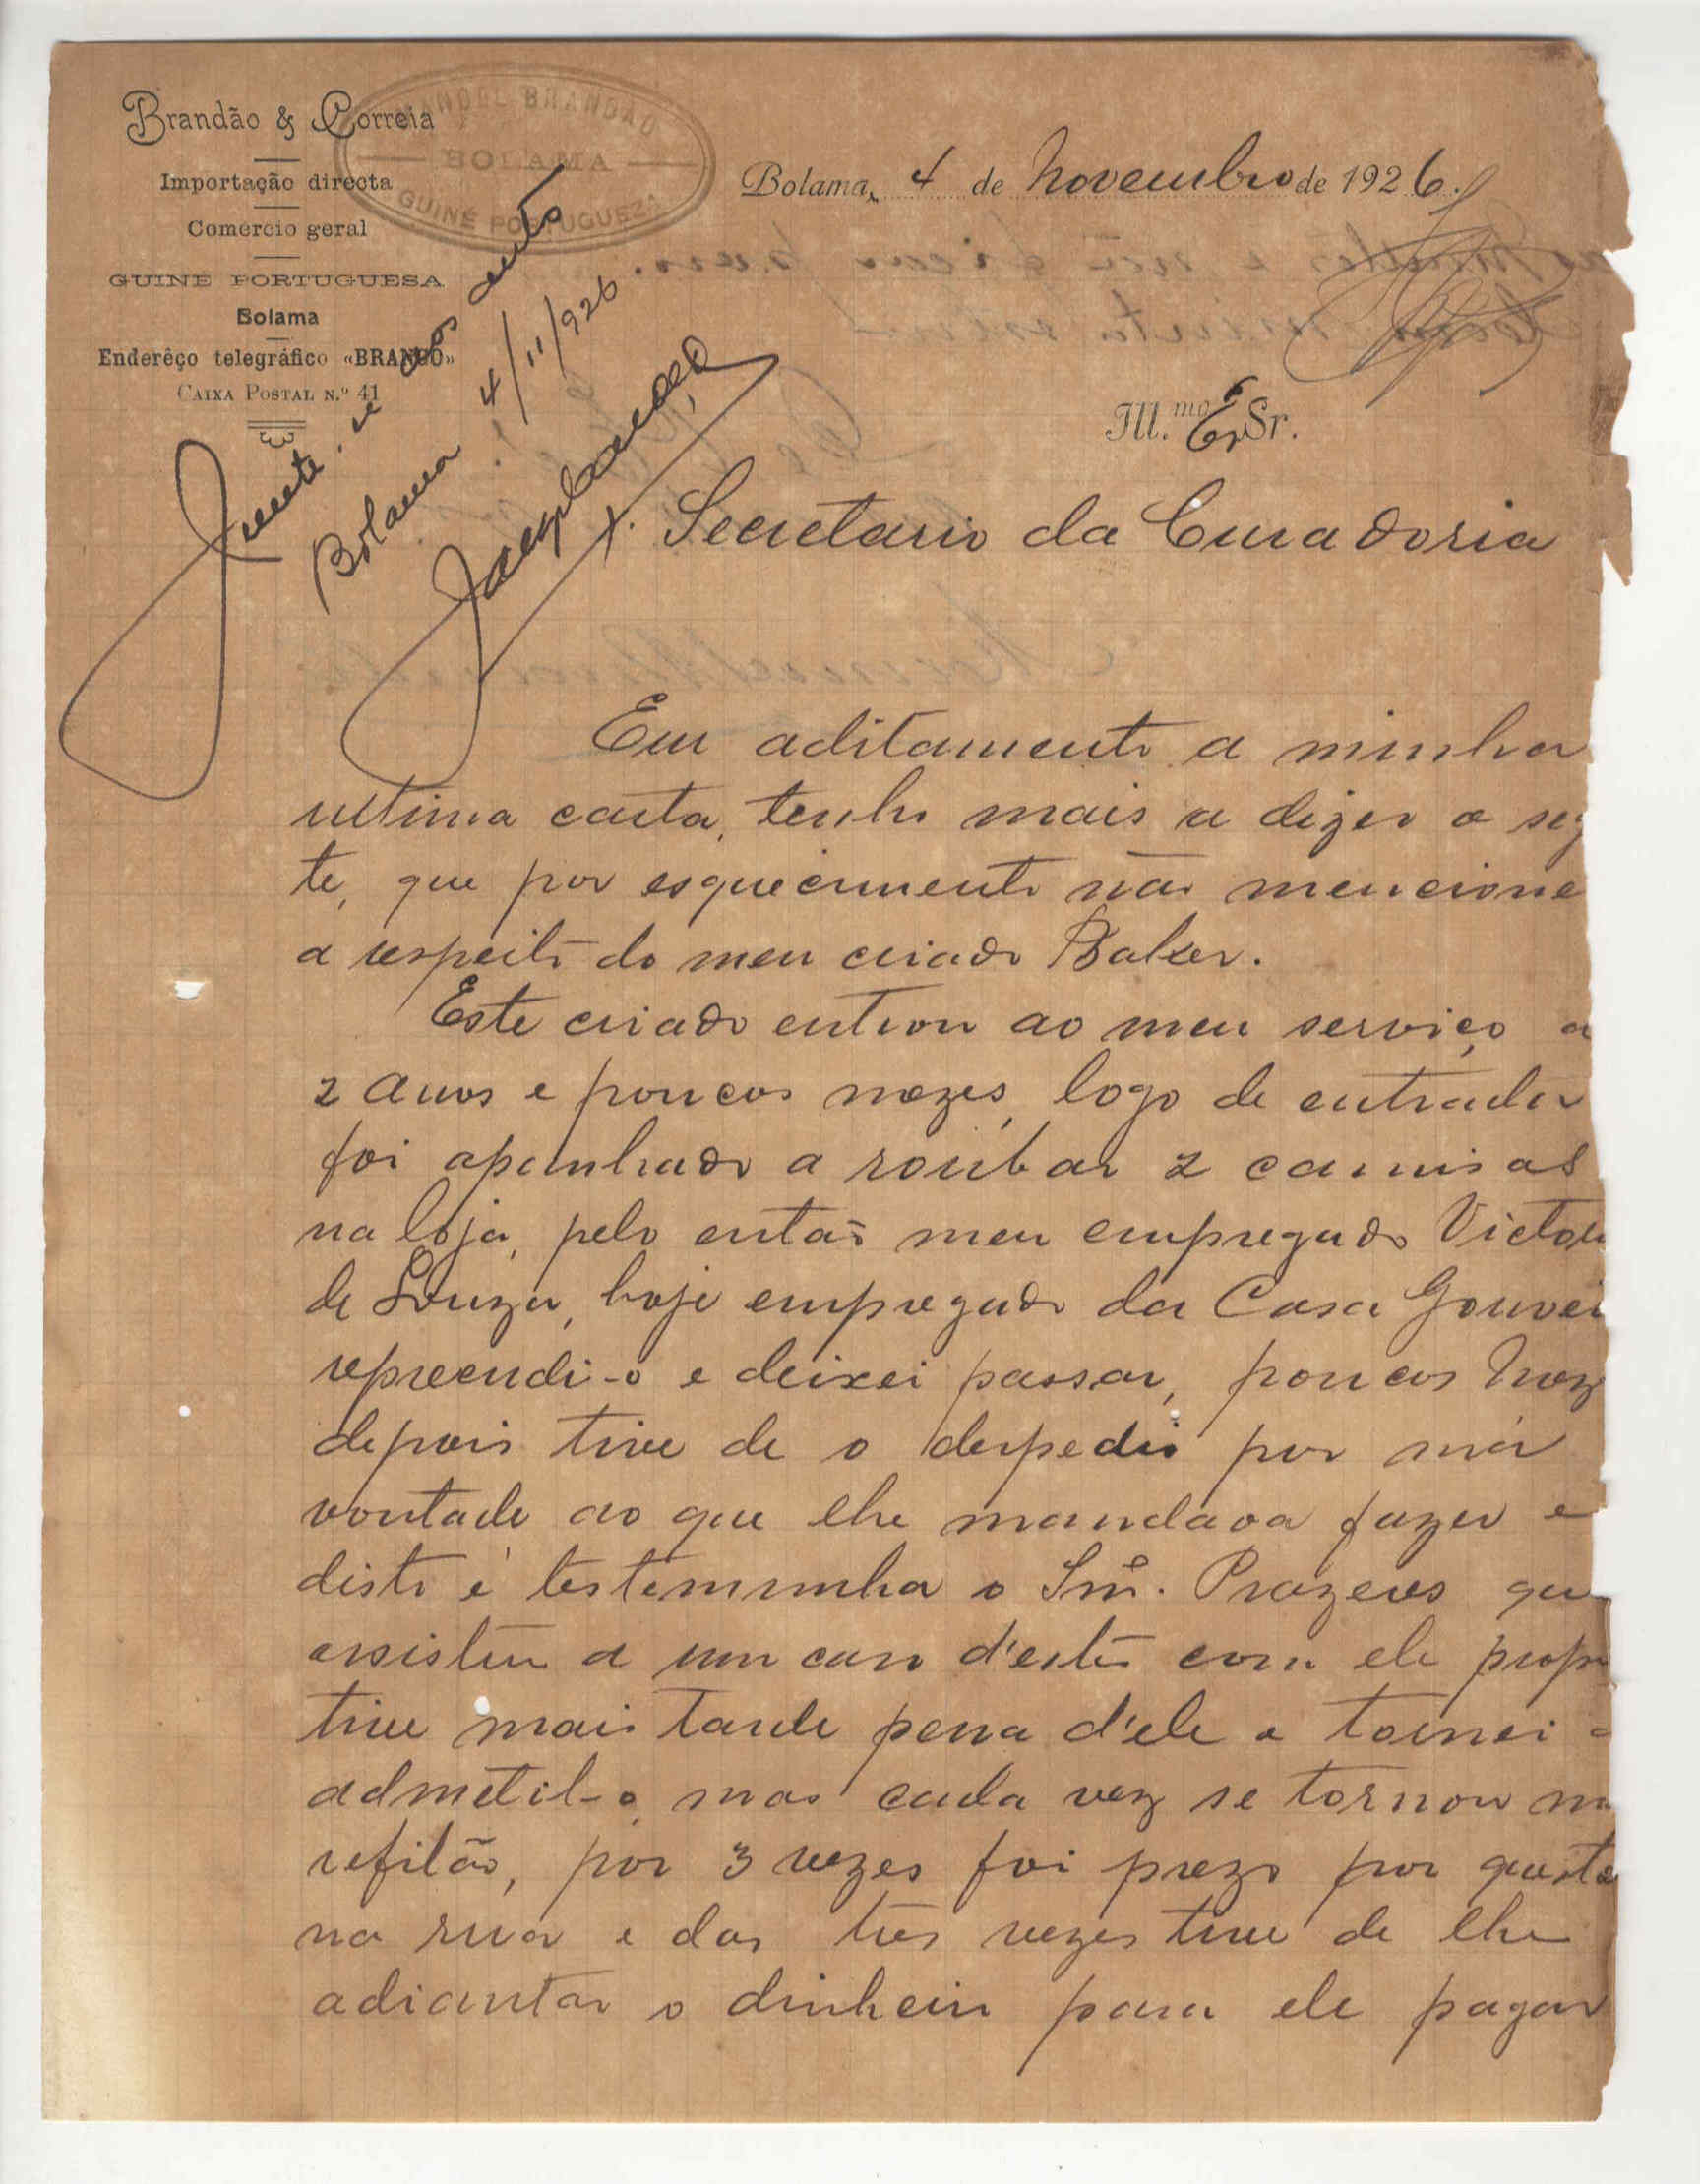 Brandão & Correia
Importação directa
Comercio geral
GUINE PORTUGUESA
Bolama
Enderêço telegráfico «BRANDO»
CAIXA POSTAL N.º 41
MANOEL BRANDÃO
BOLAMA
GUINÉ PORTUGUEZA
Bolama, 4 de Novembro de 1926.
Junte-se aos autos
Bolama 4/11/926
Ill.mo Ex Sr.
Secretario da Curadoria
Em aditamento a minha
ultima carta, tenho mais a dizer o seg
te, que por esquecimento não mencione
a respeito do meu criado Baker.
Este criado entrou ao meu serviço a
2 anos e poucos mezes, logo de entrada
foi apanhado a roubar 2 camisas
na loja, pelo então meu empregado Victor
de Souza, hoje empregado da Casa Gouvei
repreendi-o e deixei passar, poucos mez
depois tive de o despedir por má
vontade ao que lhe mandava fazer e
disto é testemunha o Snr. Prazeres que
assistiu a um caso d'estes com ele propr
tive mais tarde pena d'ele e tornei a
admetil-o, mas cada vez se tornou ma
refilão, por 3 vezes foi prezo por questo
na rua e das tres vezes tive de lhe
adiantar o dinheiro para ele pagar